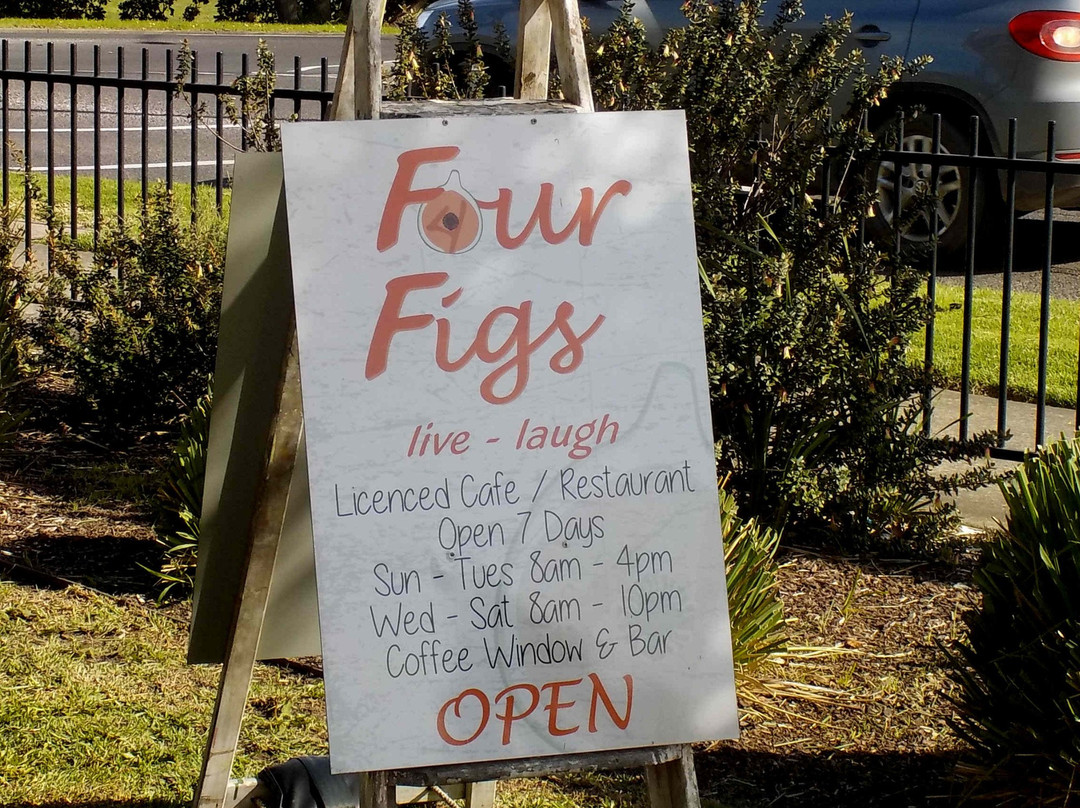 Four
Figs
live - laugh
Licenced Cafe / Restaurant
Open 7 Days
Sun - Tues 8am - 4pm
Wed - Sat 8am - 10pm
Coffee Window & Bar
OPEN